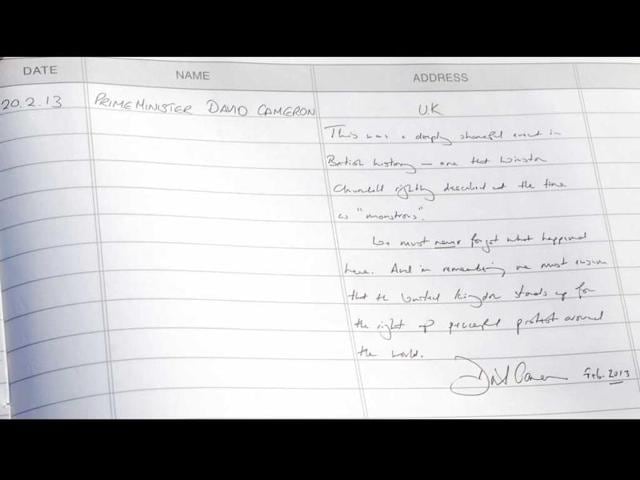 DATE NAME ADDRESS
20.2.13 PRIME MINISTER DAVID CAMERON UK
This was a deeply shameful event in
British history – one that Winston
Churchill rightly described at the time
as "monstrous".
We must never forget what happened
here. And in remembering we must ensure
that the United Kingdom stands up for
the right of peaceful protest around
the world.
David Cameron Feb. 2013